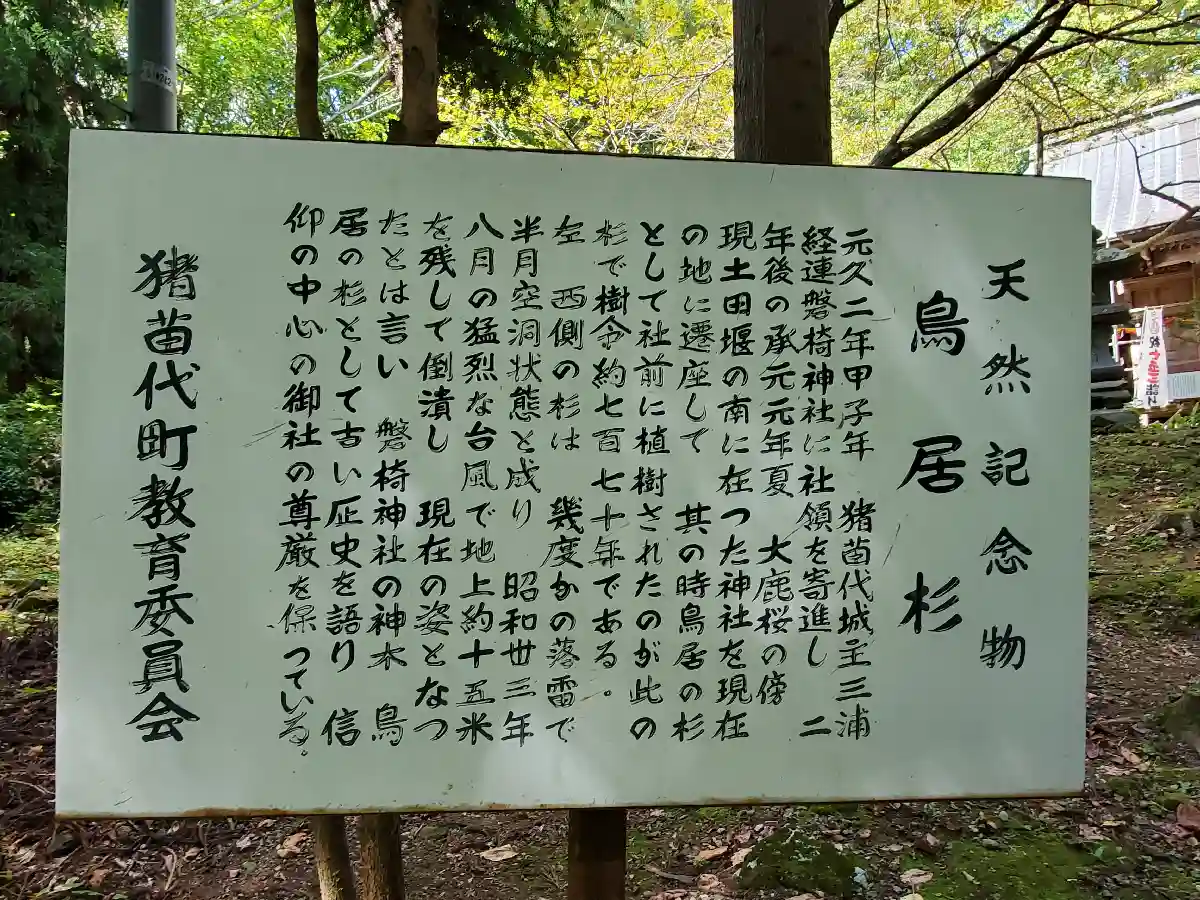 天然記念物
鳥居杉
元久二年甲子年　猪苗代城主三浦
経連磐椅神社に社領を寄進し　二
年後の承元元年夏　大鹿桜の傍
現土田堰の南に在つた神社を現在
の地に遷座して　其の時鳥居の杉
として社前に植樹されたのが此の
杉で樹令約七百七十年である。
左　西側の杉は　幾度かの落雷で
半月空洞状態と成り　昭和卅三年
八月の猛烈な台風で地上約十五米
を残して倒潰し　現在の姿となつ
たとは言い　磐椅神社の神木　鳥
居の杉として古い歴史を語り　信
仰の中心の御社の尊厳を保つている。
猪苗代町教育委員会